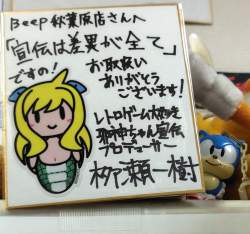 Beep 秋葉原店さんへ
「宣伝は差異が全て」
ですの!
お取扱い
ありがとう
ございます!
レトロゲーム大好き
邪神ちゃん宣伝
プロデューサー
栁瀬一樹